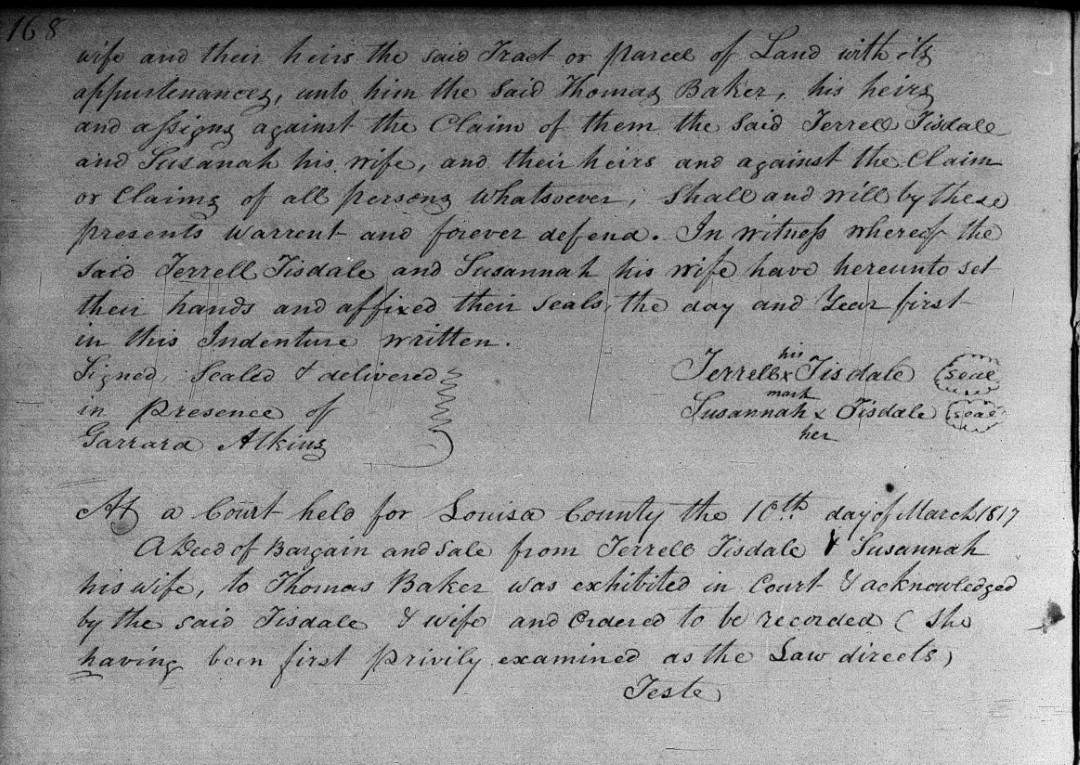 168
wife and their heirs the said Tract or parcel of Land with its
appurtenances, unto him the said Thomas Baker, his heirs
and assigns against the Claim of them the said Terrell Tisdale
and Susanah his wife, and their heirs and against the Claim
or Claims of all persons whatsoever, shall and will by these
presents warrent and forever defend. In witness whereof the
said Terrell Tisdale and Susannah his wife have hereunto set
their hands and affixed their seals, the day and Year first
in this Indenture written.
Signed, Sealed & delivered
in presence of
Garrard Atkins
his
Terrell x Tisdale seal
mark
Susannah x Tisdale seal
her
At a Court held for Louisa County the 10th day of March 1817
A Deed of Bargain and Sale from Terrell Tisdale & Susannah
his wife, to Thomas Baker was exhibited in Court & acknowledged
by the said Tisdale & wife and Ordered to be recorded (She
having been first privily examined as the Law directs)
Teste